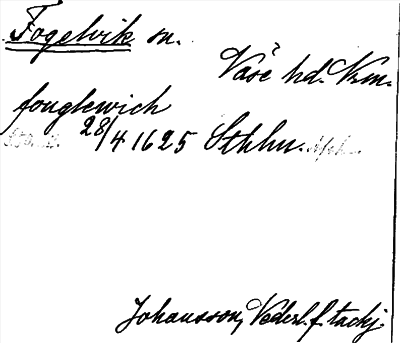 Fogelvik sn.
Väse hd. Vrm.
fouglewich
28/4 1625 Sthlm.
Johansson, Vederl. f. tackj.